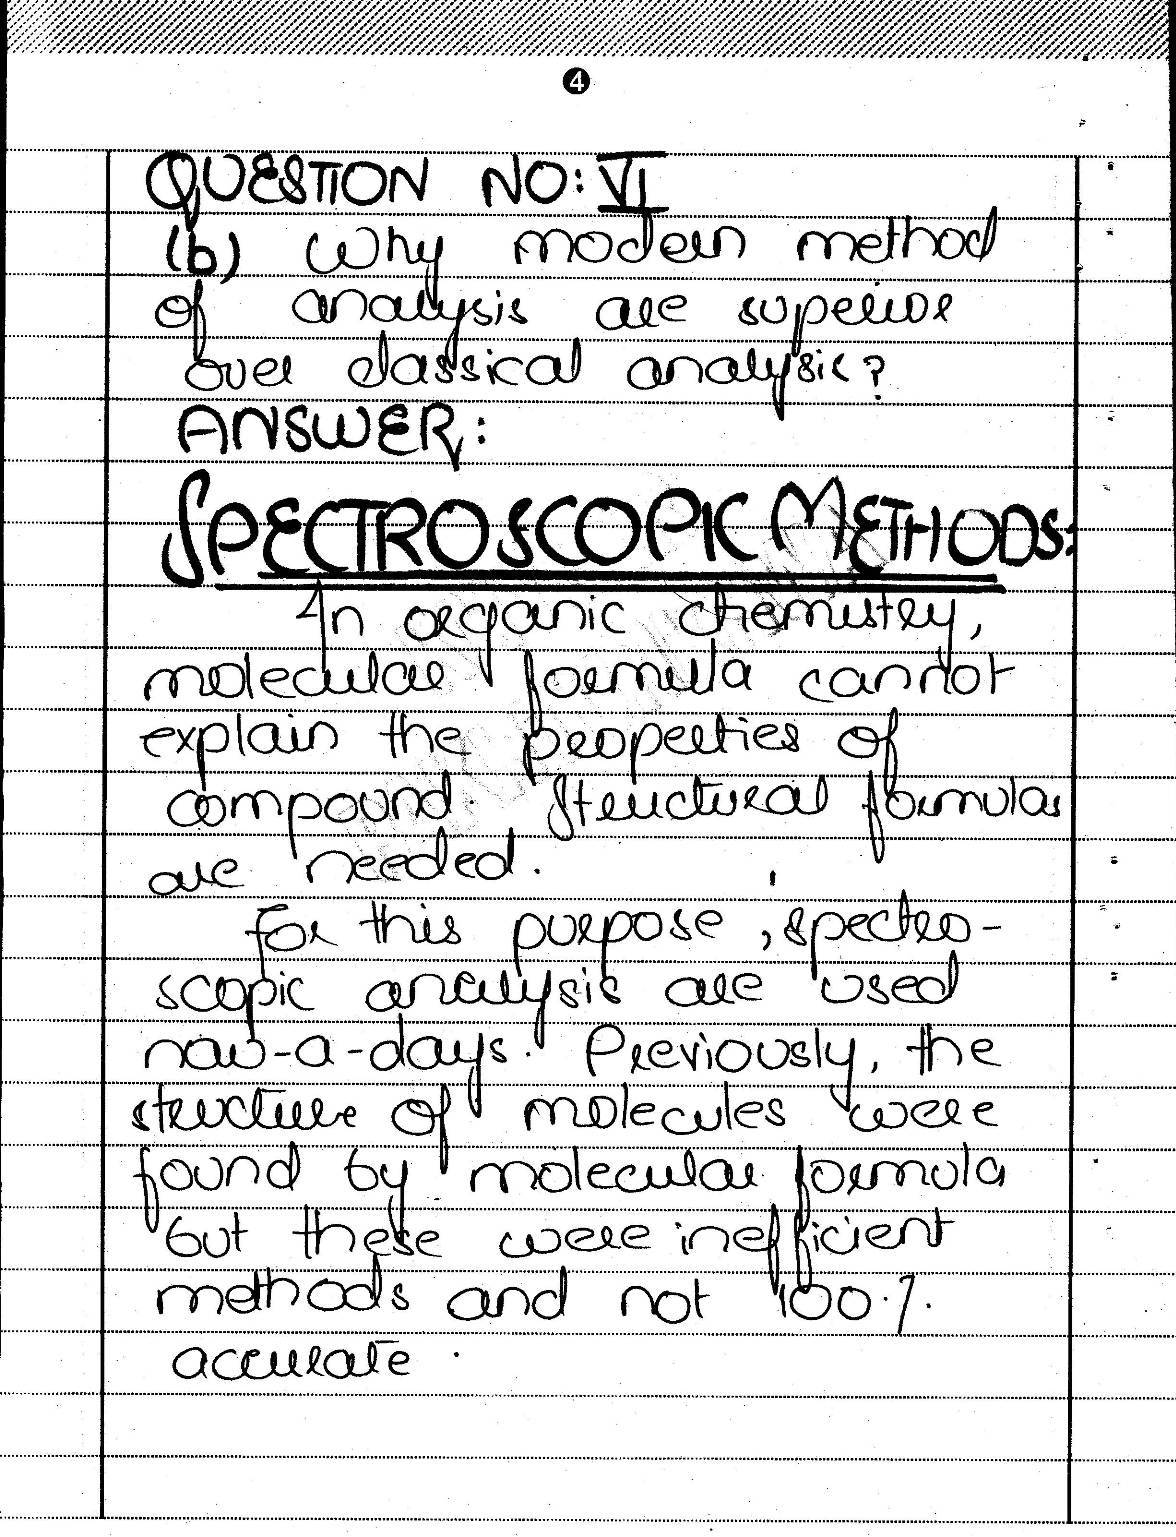 4
QUESTION NO: VI
(b) Why modern method
of analysis are superior
over classical analysis?
ANSWER:
SPECTROSCOPIC METHODS:
In organic chemistry,
molecular formula cannot
explain the properties of
compound. Structural formulas
are needed.
For this purpose, spectro-
scopic analysis are used
now-a-days. Previously, the
structure of molecules were
found by molecular formula
but these were inefficient
methods and not 100%
accurate.